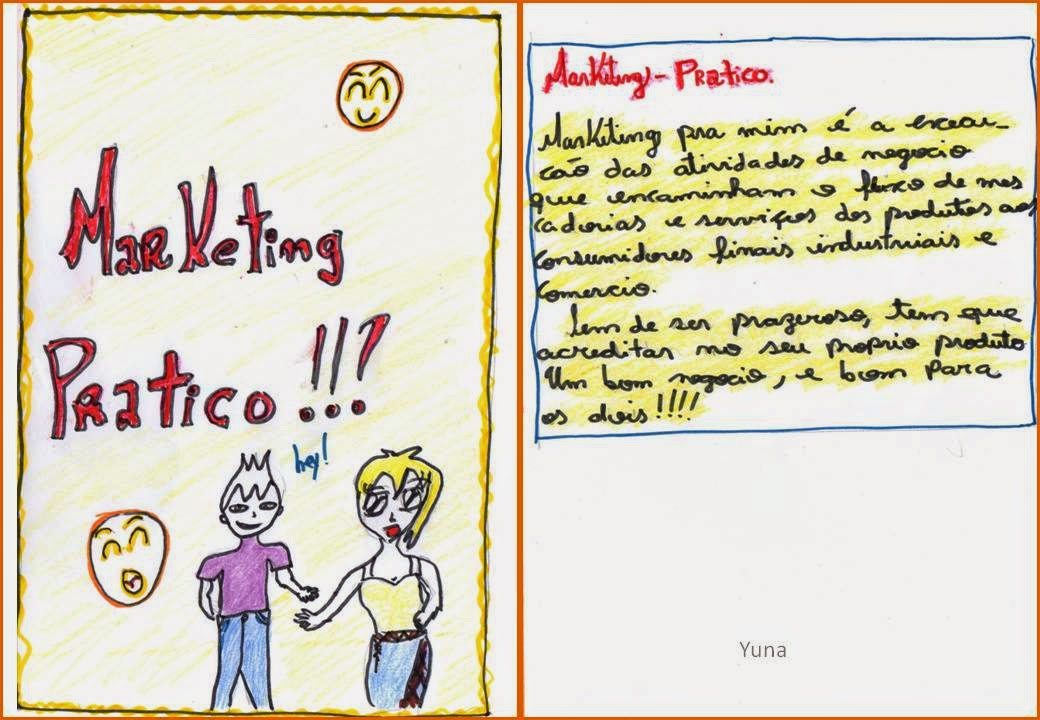 Marketing
Pratico !!?
hey!
Marketing - Pratico.
Marketing pra mim é a execu-
cão das atividades de negocio
que encaminham o fluxo de mes
cadorias e serviços dos produtos aos
consumidores finais industriais e
comercio.
Tem de ser prazeroso, tem que
acreditar no seu proprio produto
Um bom negocio, e bom para
os dois!!!!
Yuna